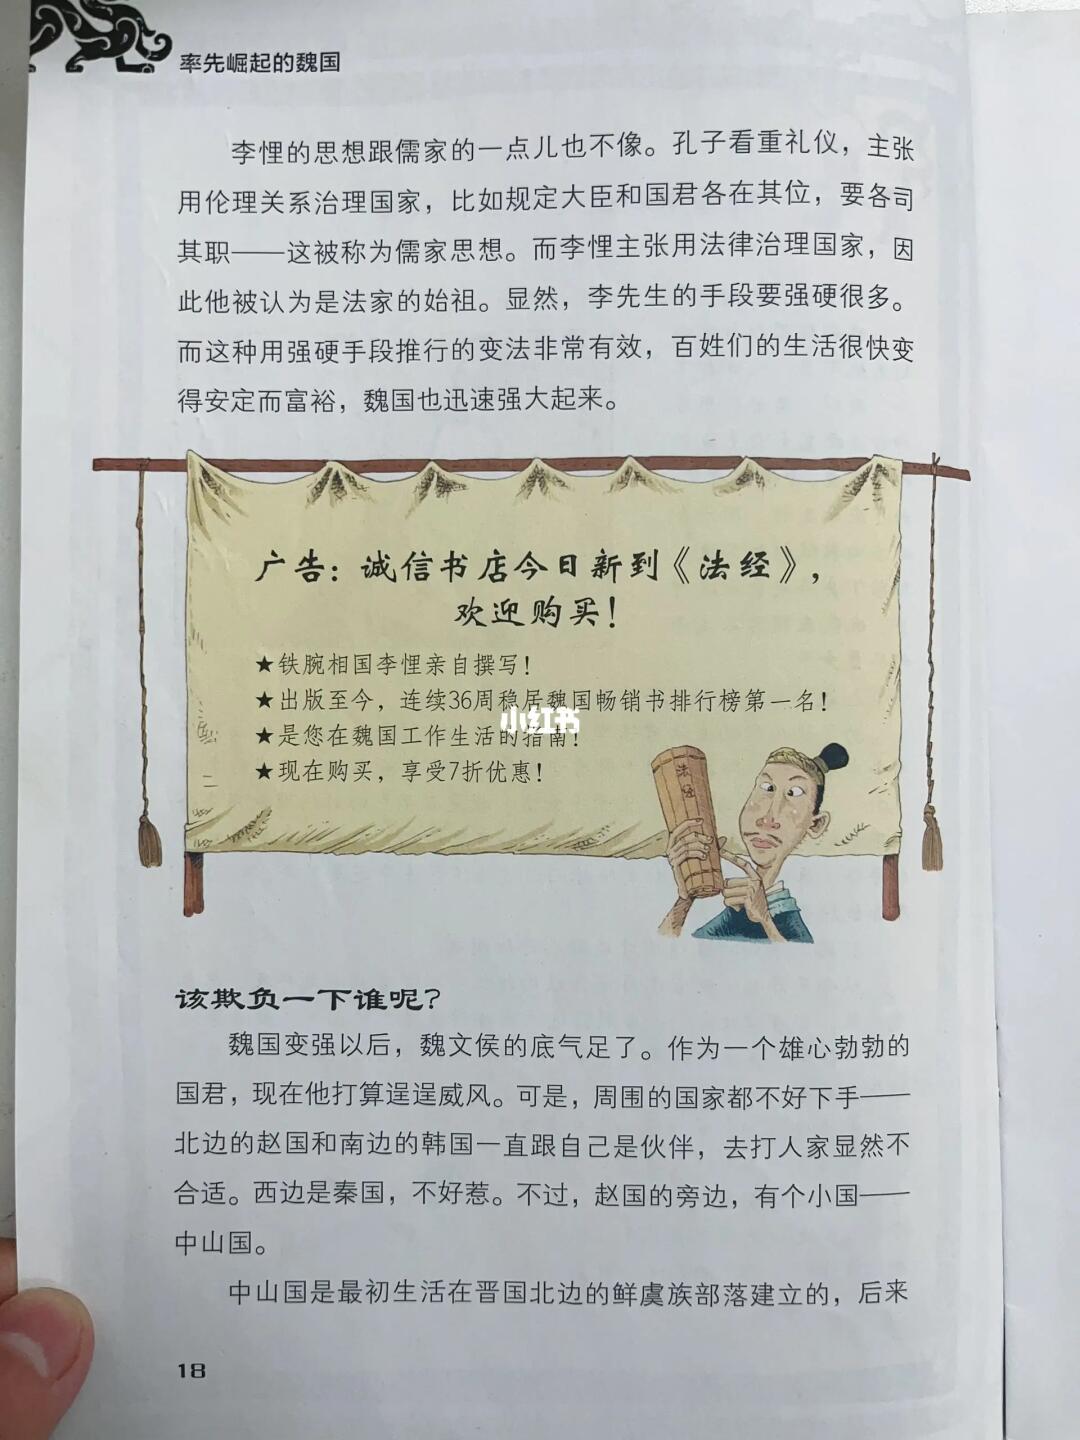 率先崛起的魏国
李悝的思想跟儒家的一点儿也不像。孔子看重礼仪，主张
用伦理关系治理国家，比如规定大臣和国君各在其位，要各司
其职——这被称为儒家思想。而李悝主张用法律治理国家，因
此他被认为是法家的始祖。显然，李先生的手段要强硬很多。
而这种用强硬手段推行的变法非常有效，百姓们的生活很快变
得安定而富裕，魏国也迅速强大起来。
广告：诚信书店今日新到《法经》，
欢迎购买！
★铁腕相国李悝亲自撰写！
★出版至今，连续36周稳居魏国畅销书排行榜第一名！
小红书
★是您在魏国工作生活的指南！
★现在购买，享受7折优惠！
法经
该欺负一下谁呢？
魏国变强以后，魏文侯的底气足了。作为一个雄心勃勃的
国君，现在他打算逞逞威风。可是，周围的国家都不好下手——
北边的赵国和南边的韩国一直跟自己是伙伴，去打人家显然不
合适。西边是秦国，不好惹。不过，赵国的旁边，有个小国——
中山国。
中山国是最初生活在晋国北边的鲜虞族部落建立的，后来
18